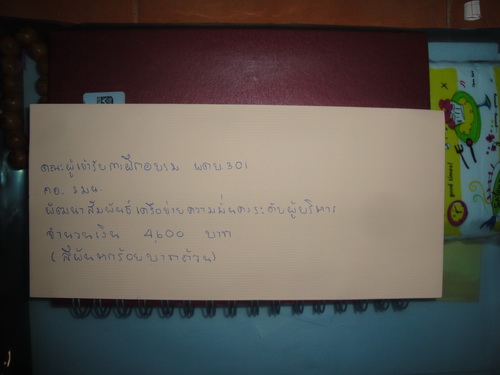 คณะผู้เข้ารับการฝึกอบรม พตบ 301
กอ. รมน.
พัฒนาสัมพันธ์เครือข่ายความมั่นคงระดับผู้บริหาร
จำนวนเงิน 4,600 บาท
(สี่พันหกร้อยบาทถ้วน)
good times!